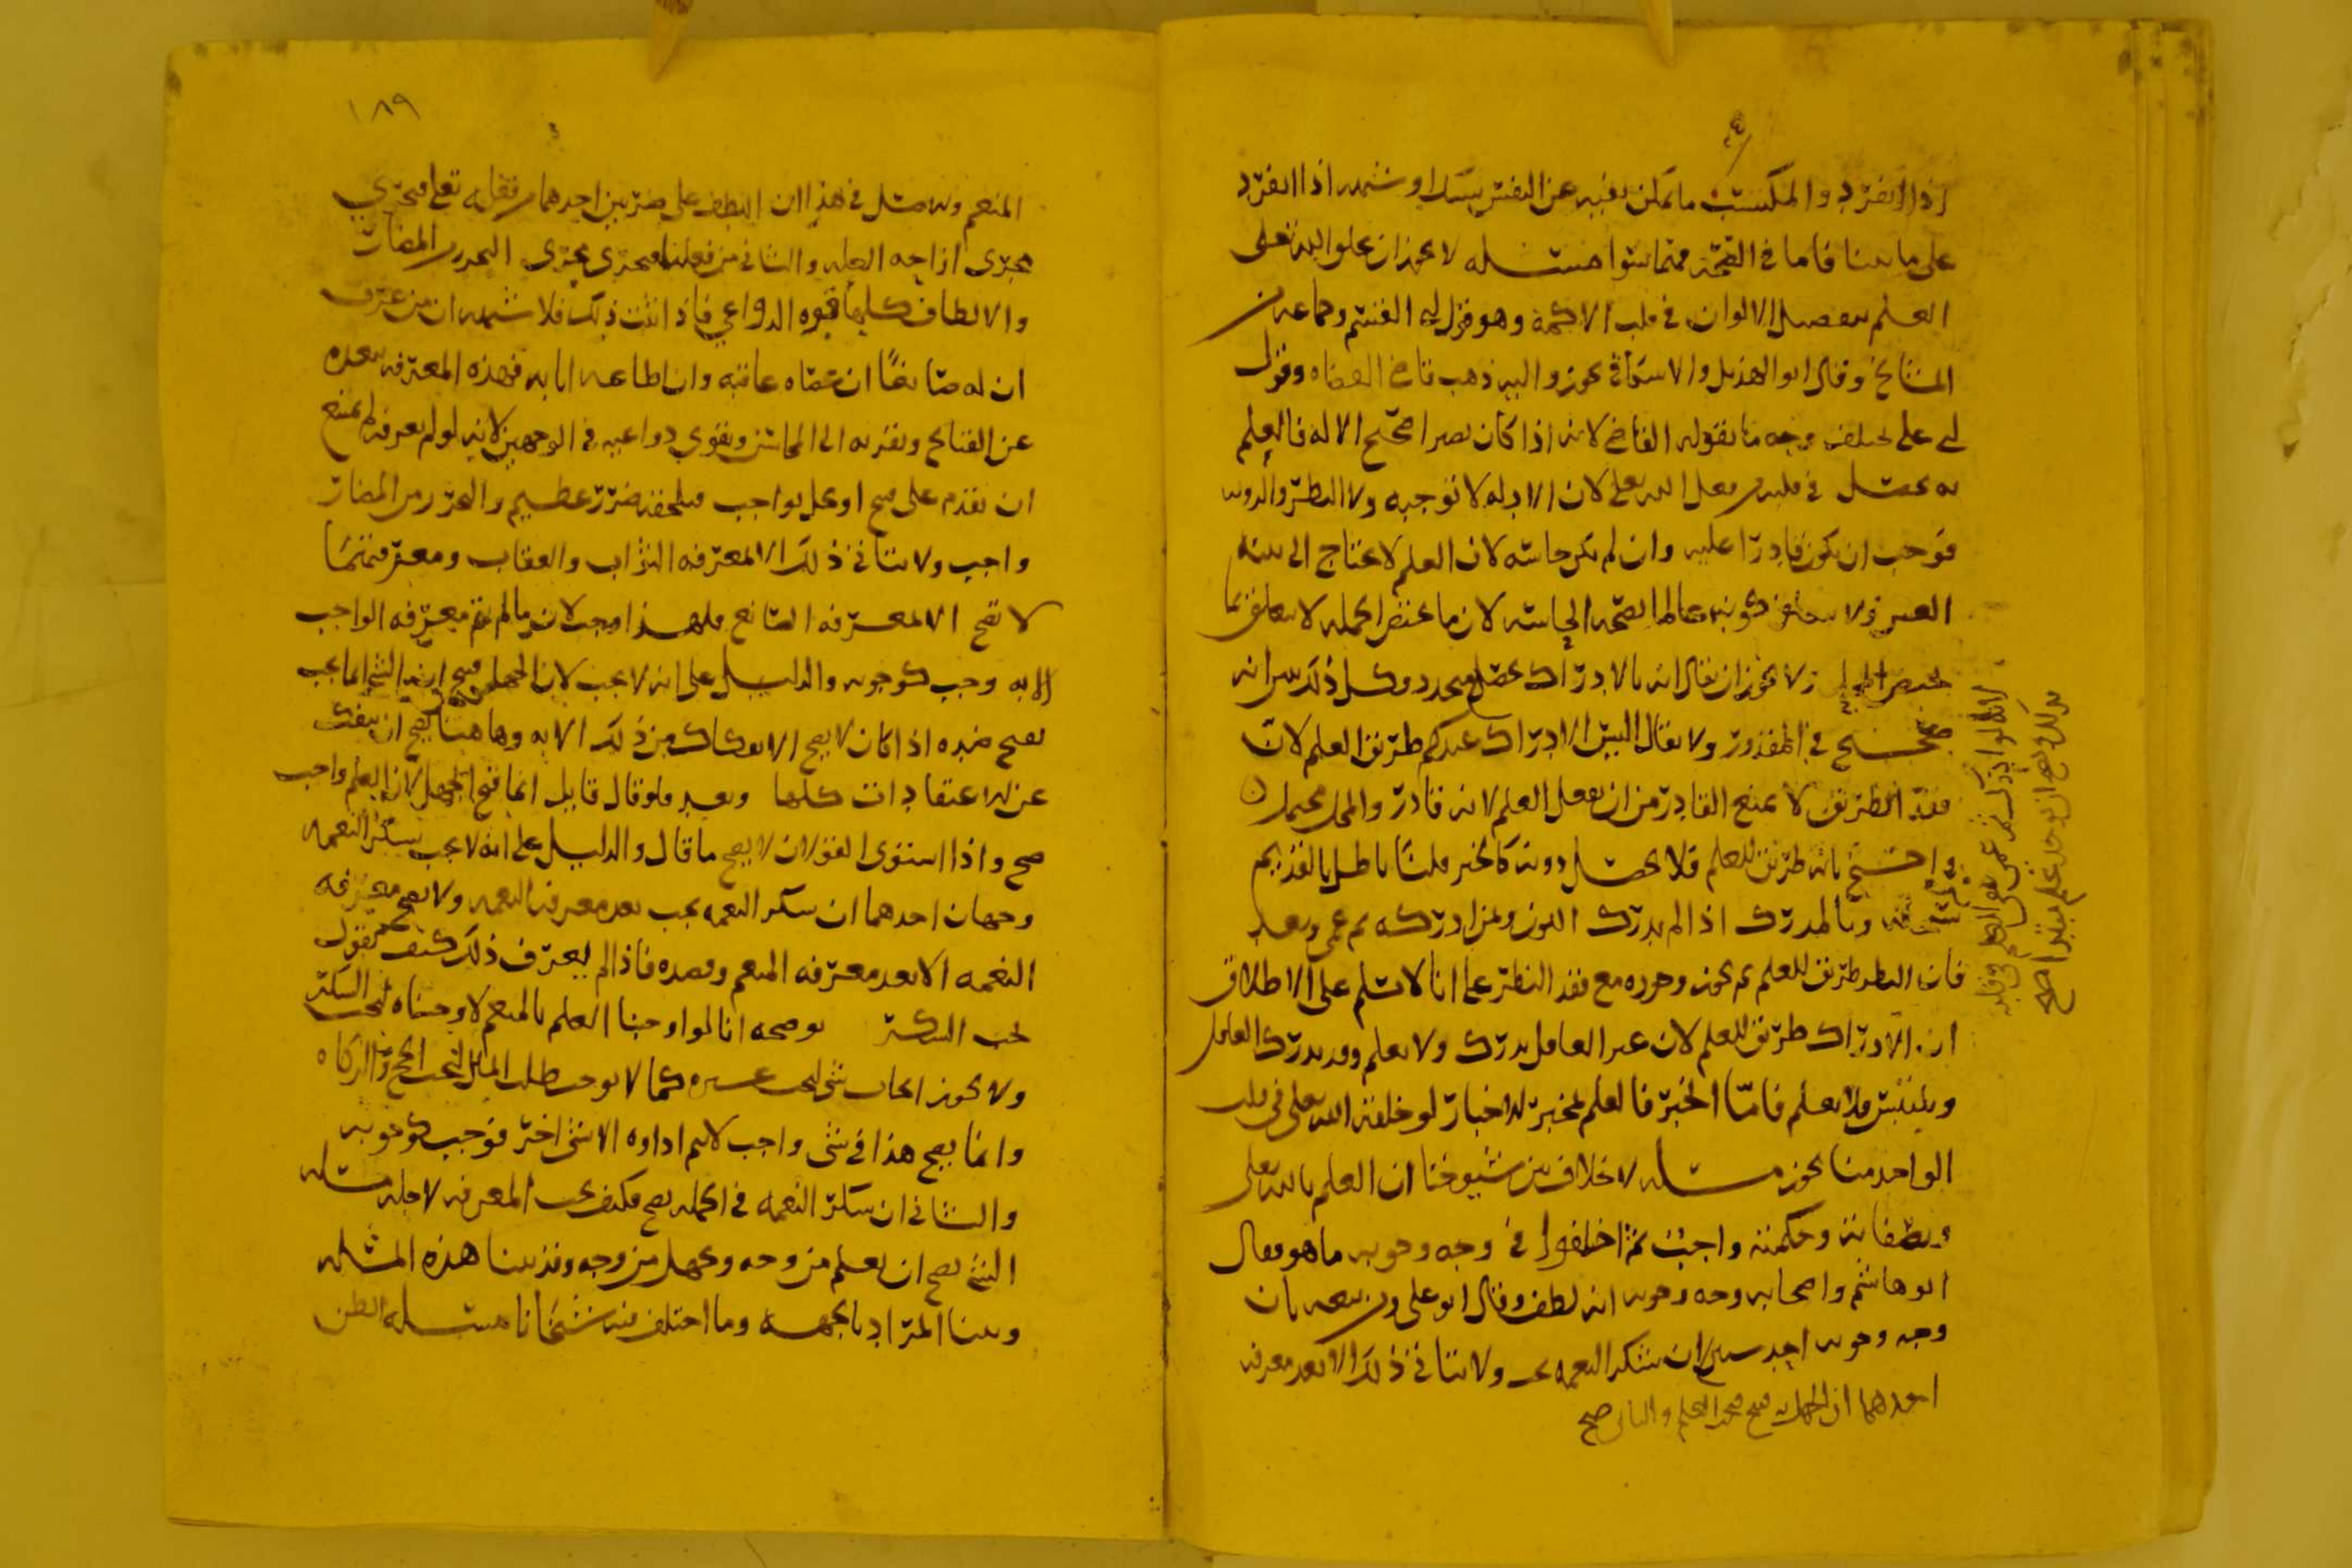 اذا انفرد والمكتسب ما يمكن نفيه عن النفس بشك او شبهه اذا انفرد
على ما بينا فاما في الصحة فهما سوا مسئله لا يجوز ان يخلو الله تعالى
العلم بتفصيل الالوان في قلب الاكمه وهو قول ابي القسم وجماعه من
المشايخ وقال ابو الهذيل والاسكافي يجوز واليه ذهب قاضي القضاه وقول
ابي علي مختلف وجه ما يقوله القاضي لانه اذا كان بصيرا صحيح الاله فالعلم
به يحصل في قلبه من فعل الله تعالى لان الادله لا توجبه ولا النظر والرويه
فوجب ان يكون قادرا عليه وان لم يكن حاسه لان العلم لا يحتاج الى بنيه
العين ولا يتعلق كونه عالما بصحه الحاسه لان ما يختص الجمله لا يتعلق بما
يختص المحل ولا يجوز ان يقال انه بالادراك يحصل ويتجدد وكل ذلك يبين انه
صحيح في المقدور ولا يقال اليس الادراك عندكم طريق العلم لان
فقد الطريق لا يمنع القادر من ان يفعل العلم لانه قادر والمحل محتمل
واحتج بانه طريق للعلم فلا يحصل دونه كالخبر قلنا باطل بالقديم
سبحانه وبالمدرك اذا لم يدرك اللون وبمن ادركه ثم عمي وبعد
فان النظر طريق للعلم ثم يجوز وجوده مع فقد النظر على انا لا نسلم على الاطلاق
ان الادراك طريق للعلم لان غير العاقل يدرك ولا يعلم وقد يدرك العاقل
ويلتبس فلا يعلم فاما الخبر فالعلم بمخبر الاخبار لو خلقه الله تعالى في قلب
الواحد منا يجوز مسئله لا خلاف بين شيوخنا ان العلم بالله تعالى
وبصفاته وحكمته واجب ثم اختلفوا في وجه وجوبه ما هو فقال
ابو هاشم واصحابه وجه وجوبه انه لطف وقال ابو علي ومن تبعه بان
وجه وجوبه احد شيئين ان شكر النعمه يجب ولا يتاتى ذلك الا بعد معرفه
احدهما ان الجهل به قبيح فيجب العلم والثاني صح
لانه لو ادرك ثم عمي بقي العلم في قلبه
فكذلك يصح ان يوجد فيه علم مبتدا صح
١٨٩
المنعم وبه نستدل في هذا ان اللطف على ضربين احدهما من فعله تعالى فيجري
مجرى ازاحه العله والثاني من فعلنا فيجري مجرى التحرز من المضار
والالطاف كلها تقوه الدواعي فاذا ثبت ذلك فلا شبهه ان من عرف
ان له صانعا ان عصاه عاقبه وان اطاعه اثابه فهذه المعرفه تبعده
عن القبائح وتقربه الى المحاسن وتقوي دواعيه في الوجهين لانه لو لم يعرفه لم يمتنع
ان يقدم على قبيح او يخل بواجب فيلحقه ضرر عظيم والتحرز من المضار
واجب ولا يتاتى ذلك الا لمعرفه الثواب والعقاب ومعرفتهما
لا تصح الا بمعرفه الصانع فلهذا وجب لان ما لم يتم معرفه الواجب
الا به وجب كوجوبه والدليل على انه لا يجب لان الجهل قبيح ان الشي انما يجب
لقبح ضده اذا كان لا يصح الانفكاك من ذلك الا به وهاهنا يصح ان ينفك
عن الاعتقادات كلها وبعد فلو قال قايل انما قبح الجهل لان العلم واجب
صح واذا استوى القولان لا يصح ما قال والدليل على انه لا يجب لشكر النعمه
وجهان احدهما ان شكر النعمه يجب بعد معرفه النعمه ولا يصح معرفه
النعمه الا بعد معرفه المنعم وقصده فاذا لم يعرف ذلك كيف نقول
يجب الشكر يوضحه انا لو اوجبنا العلم بالمنعم لاوجبناه ليجب الشكر
ولا يجوز ايجاب شي ليجب غيره كما لا يوجب طلب المال ليجب الحج والزكاه
وانما يصح هذا في شي واجب لا يتم اداوه الا بشي اخر فوجب كوجوبه
والثاني ان شكر النعمه في الجمله يصح فكيف يجب المعرفه لاجله مسئله
الشي يصح ان يعلم من وجه ويجهل من وجه وقد بينا هذه المسئله
وبينا المراد بالجهه وما اختلف فيه شيخانا مسئله الظن